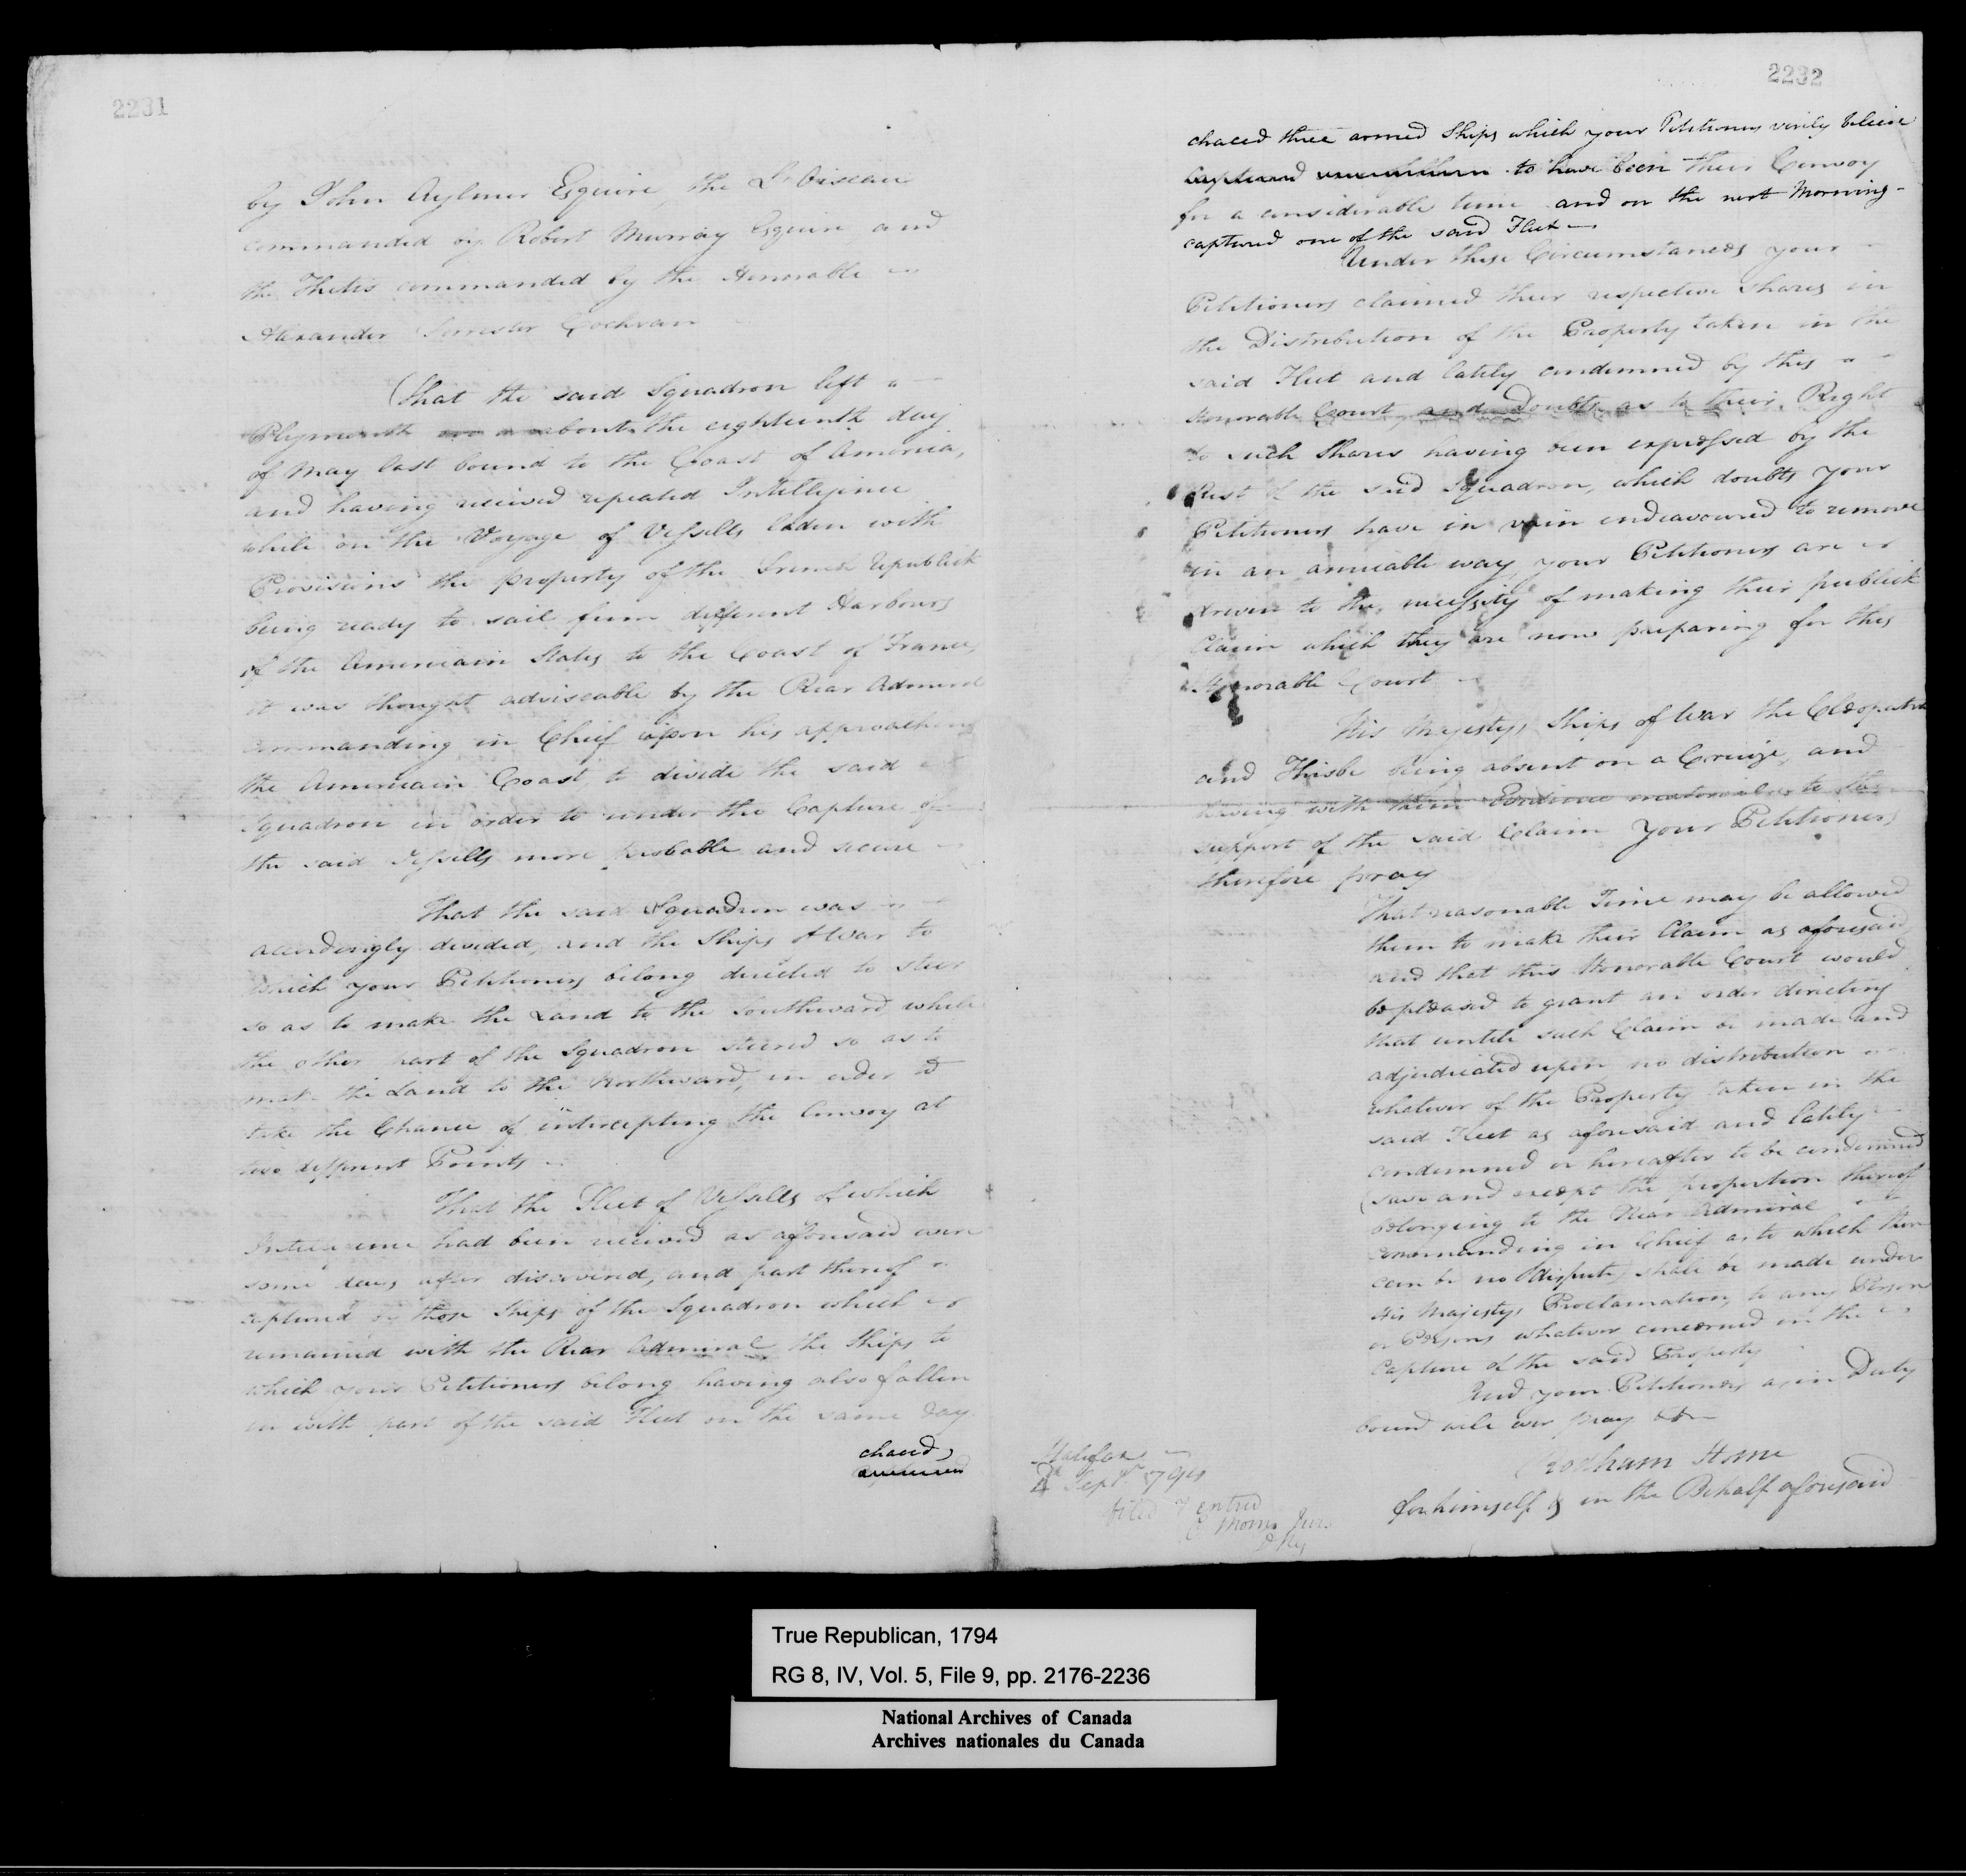 2231
by John Aylmer Esquire, the L'Oiseau
commanded by Robert Murray Esquire and
the Thetis commanded by the Honorable
Alexander Forrester Cochran
That the said Squadron left
Plymouth on or about the eighteenth day
of May last bound to the Coast of America,
and having received repeated Intelligence
while on the Voyage of Vessells laden with
Provisions the property of the French Republick
being ready to sail from different Harbours
of the American States to the Coast of France,
it was thought adviseable by the Rear Admiral
commanding in Chief upon his approaching
the American Coast, to divide the said
Squadron in order to render the Capture of
the said Vessells more probable and secure
That the said Squadron was
accordingly divided, and the Ships of War to
which your Petitioners belong directed to steer
so as to make the Land to the Southward while
the other part of the Squadron steered so as to
make the Land to the Northward, in order to
take the Chance of intercepting the Convoy at
two different Points
That the Fleet of Vessells of which
Intelligence had been received as aforesaid were
some days after discovered, and part thereof
captured by those Ships of the Squadron which
remained with the Rear Admiral, the Ships to
which your Petitioners belong having also fallen
in with part of the said Fleet on the same day
chaced
2232
chaced three armed Ships which your Petitioners verily believe
to have been their Convoy
for a considerable time and on the next Morning
captured one of the said Fleet
Under these Circumstances your
Petitioners claimed their respective Shares in
the Distribution of the Property taken in the
said Fleet and lately condemned by this
Honorable Court and Doubts as to their Right
to such Shares having been expressed by the
Rest of the said Squadron, which doubts your
Petitioners have in vain endeavoured to remove
in an amicable way your Petitioners are
driven to the necessity of making their publick
Claim which they are now preparing for this
Honorable Court
His Majestys Ships of War the Cleopatra
and Thisbe being absent on a Cruize, and
having with them Evidence material to the
support of the said Claim Your Petitioners
therefore pray
That reasonable Time may be allowed
them to make their Claim as aforesaid,
and that this Honorable Court would
be pleased to grant an order directing
that until such Claim be made and
adjudicated upon no distribution
whatever of the Property taken in the
said Fleet as aforesaid and lately
condemned or hereafter to be condemned
(save and except the proportion thereof
belonging to the Rear Admiral
commanding in Chief as to which there
can be no dispute) shall be made under
His Majestys Proclamation, to any Person
or Persons whatever concerned in the
Capture of the said Property
And your Petitioners as in Duty
bound will ever pray &c
Rodham Home
for himself & in the Behalf aforesaid
Halifax
Septr 1794
filed & entred
C Morris Junr
D Rg
True Republican, 1794
RG 8, IV, Vol. 5, File 9, pp. 2176-2236
National Archives of Canada
Archives nationales du Canada